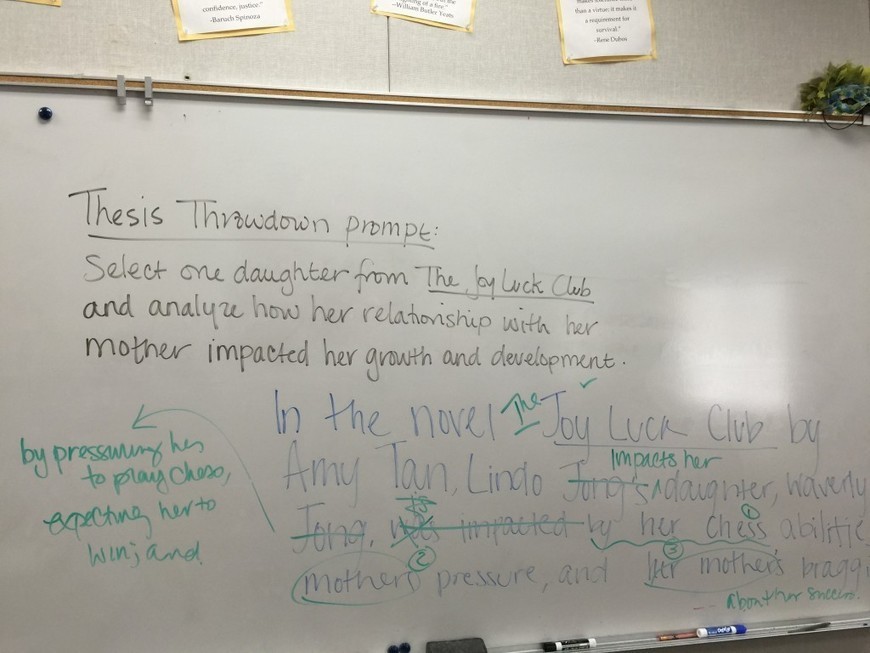 confidence, justice."
-Baruch Spinoza
~William Butler Yeats
than a virtue; it makes it
a requirement for
survival."
-Rene Dubos
Thesis Throwdown prompt:
Select one daughter from The Joy Luck Club
and analyze how her relationship with her
mother impacted her growth and development.
In the novel The Joy Luck Club by
Amy Tan, Lindo Jong's impacts her daughter, Waverly
Jong, was impacted by her chess abilitie
mothers pressure, and her mother's braggi
about her success.
1
2
3
by pressuring her
to play chess,
expecting her to
win; and